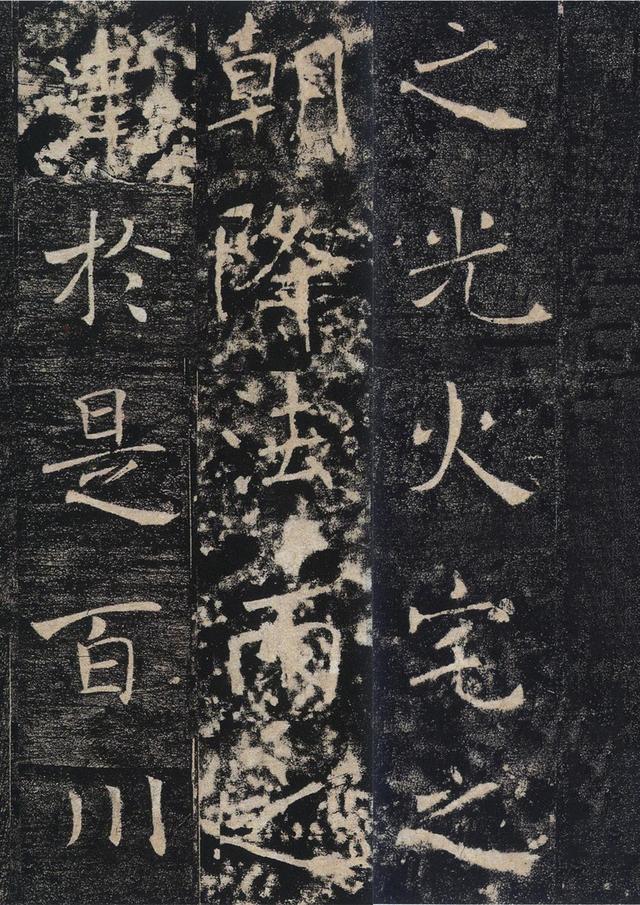 之光火宅之
朝降法雨之
澤於是百川